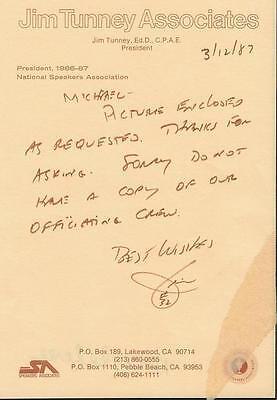 Jim Tunney Associates
Jim Tunney, Ed.D., C.P.A.E.
President
3/12/87
President, 1986-87
National Speakers Association
MICHAEL-
PICTURE ENCLOSED
AS REQUESTED. THANKS FOR
ASKING. SORRY DO NOT
HAVE A COPY OF OUR
OFFICIATING CREW.
BEST WISHES
Jim
#32
SPEAKERS ASSOCIATES
P.O. Box 189, Lakewood, CA 90714
(213) 860-0555
P.O. Box 1110, Pebble Beach, CA 93953
(408) 624-1111